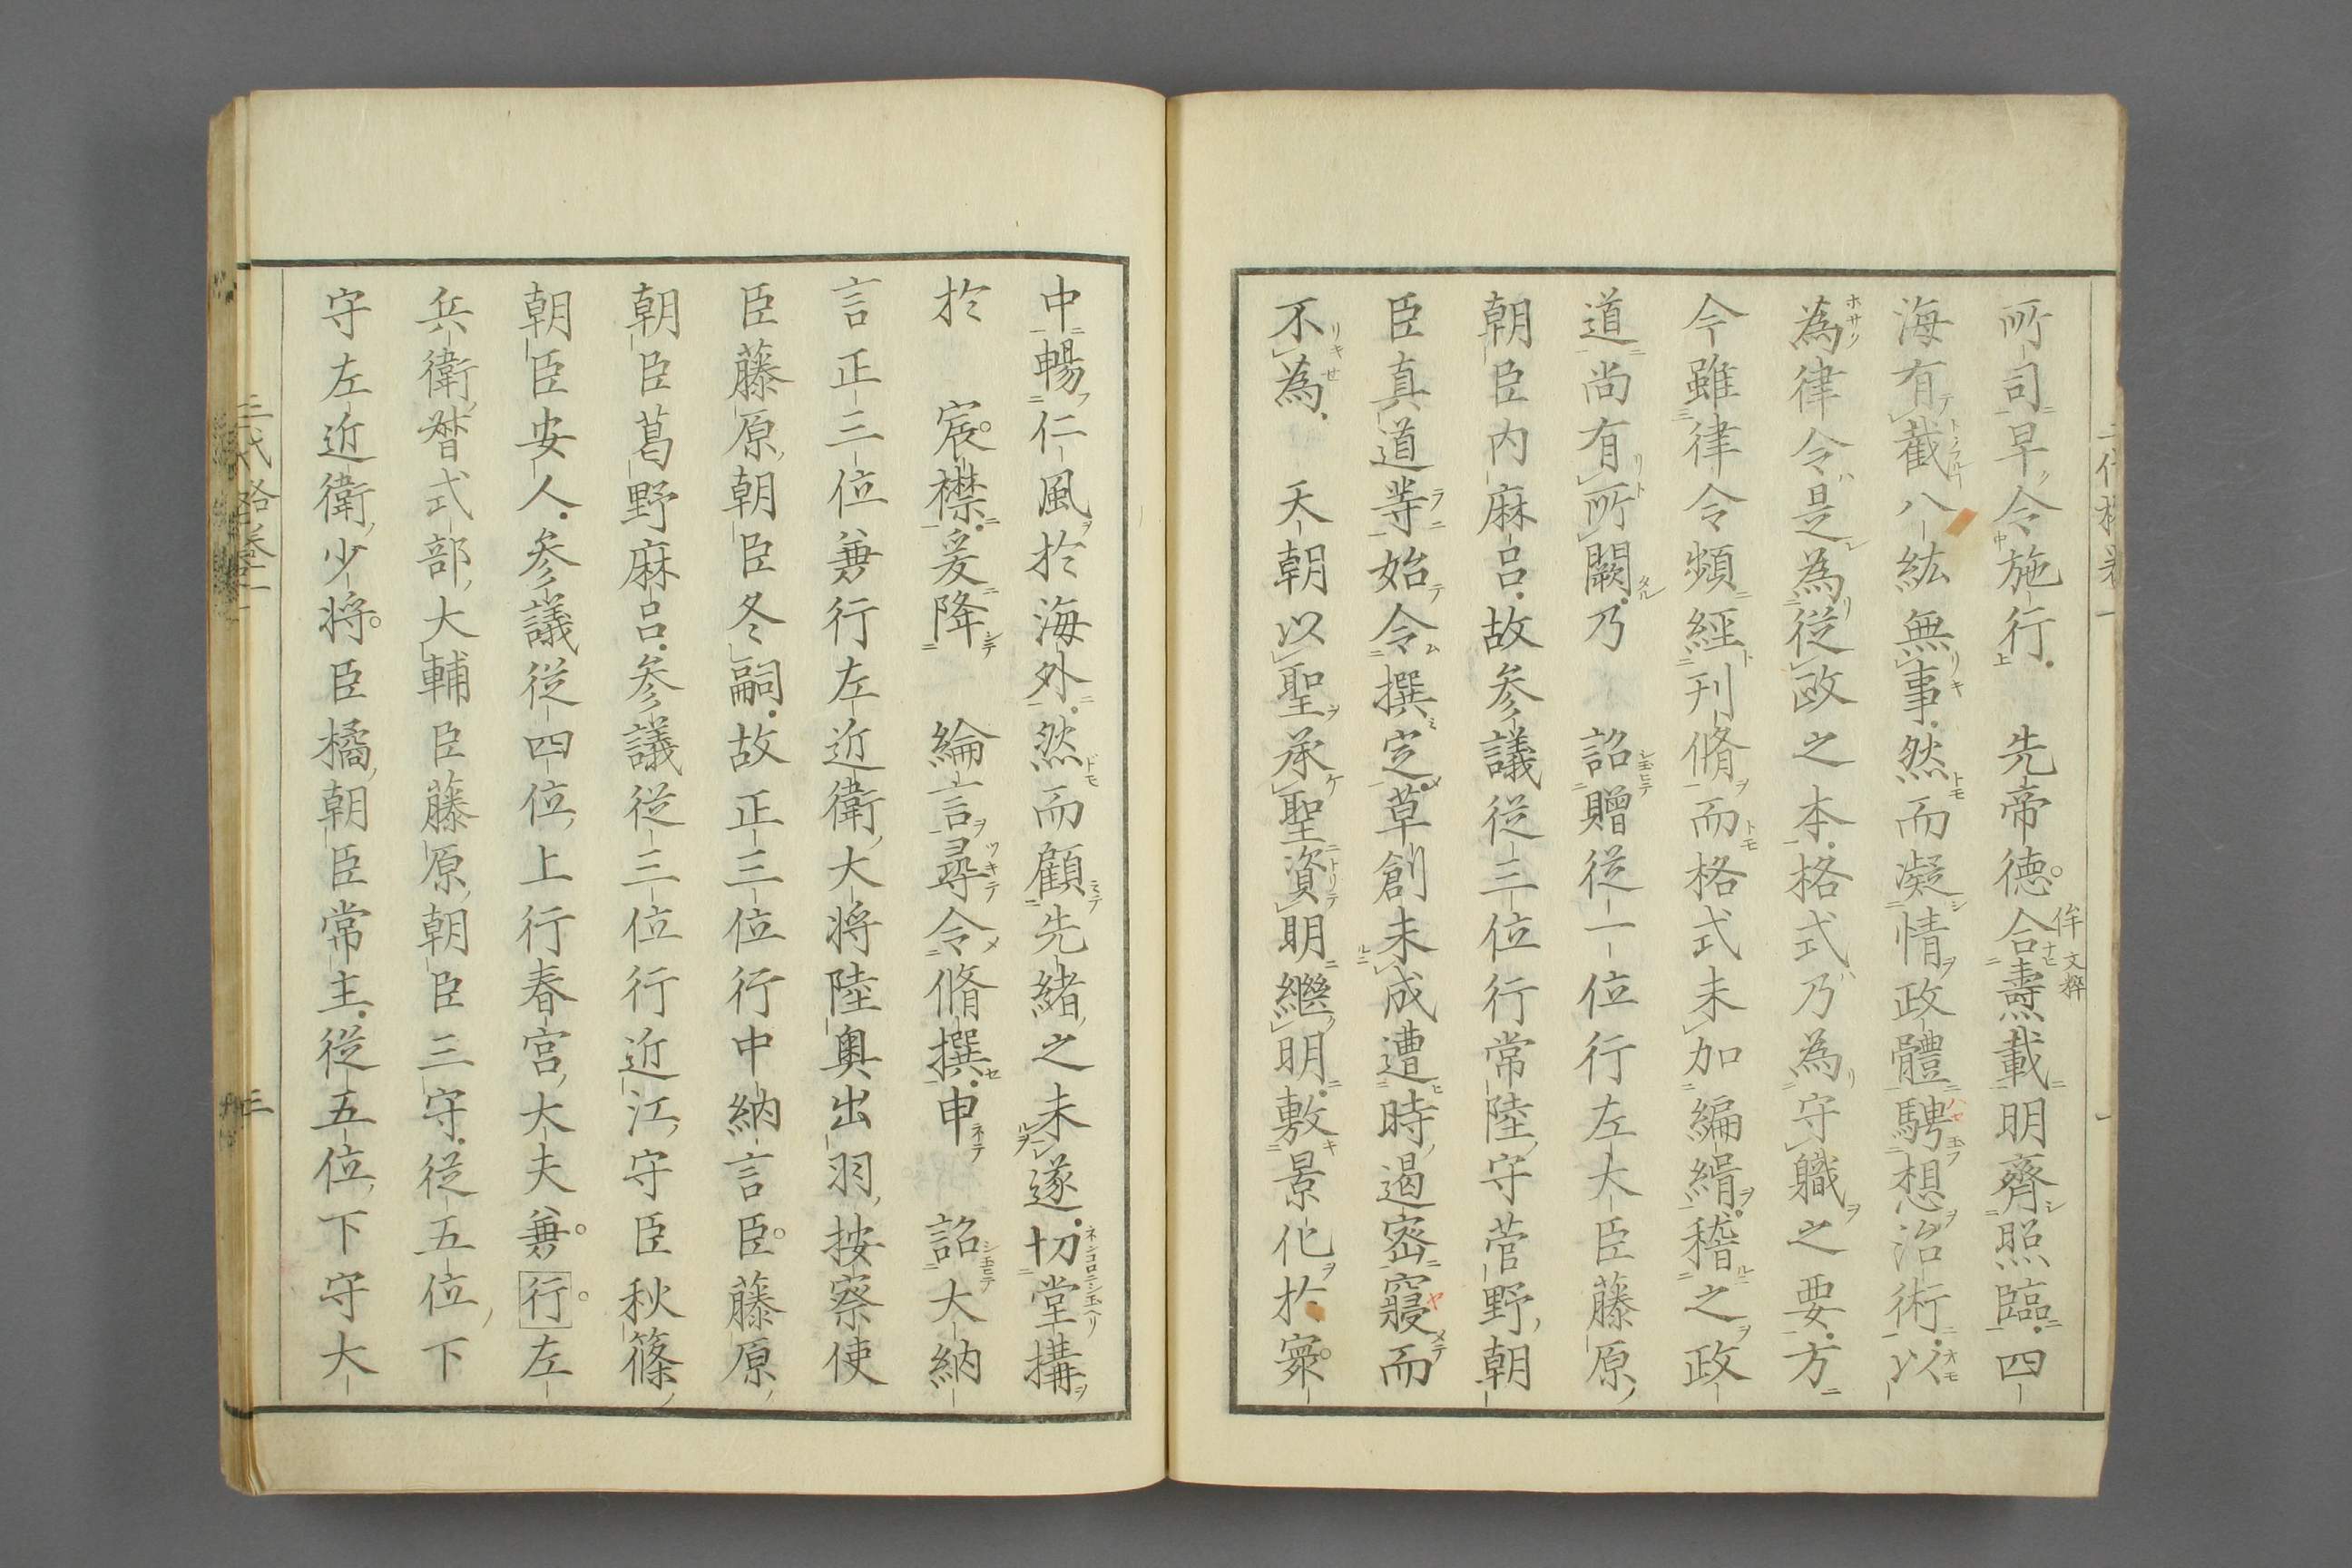 所司早令施行　先帝德合燾載明齊照臨四
侔文粹
海有截八紘無事然而凝情政體騁想治術以
為律令是為從政之本格式乃為守職之要方
今雖律令頻經刊脩而格式未加編緝稽之政
道尚有所闕乃　詔贈從一位行左大臣藤原
朝臣内麻呂故參議從三位行常陸守菅野朝
臣真道等始令撰定草創未成遭時遏密寢而
不為　天朝以聖承聖資明繼明敷景化於寰
中暢仁風於海外然而顧先緒之未遂切堂構
於　宸襟爰降　綸言尋令脩撰申　詔大納
言正三位兼行左近衛大将陸奥出羽按察使
臣藤原朝臣冬嗣故正三位行中納言臣藤原
朝臣葛野麻呂參議從三位行近江守臣秋篠
朝臣安人參議從四位上行春宮大夫兼行左
兵衛督式部大輔臣藤原朝臣三守從五位下
守左近衛少将臣橘朝臣常主從五位下守大
三代格卷一
三